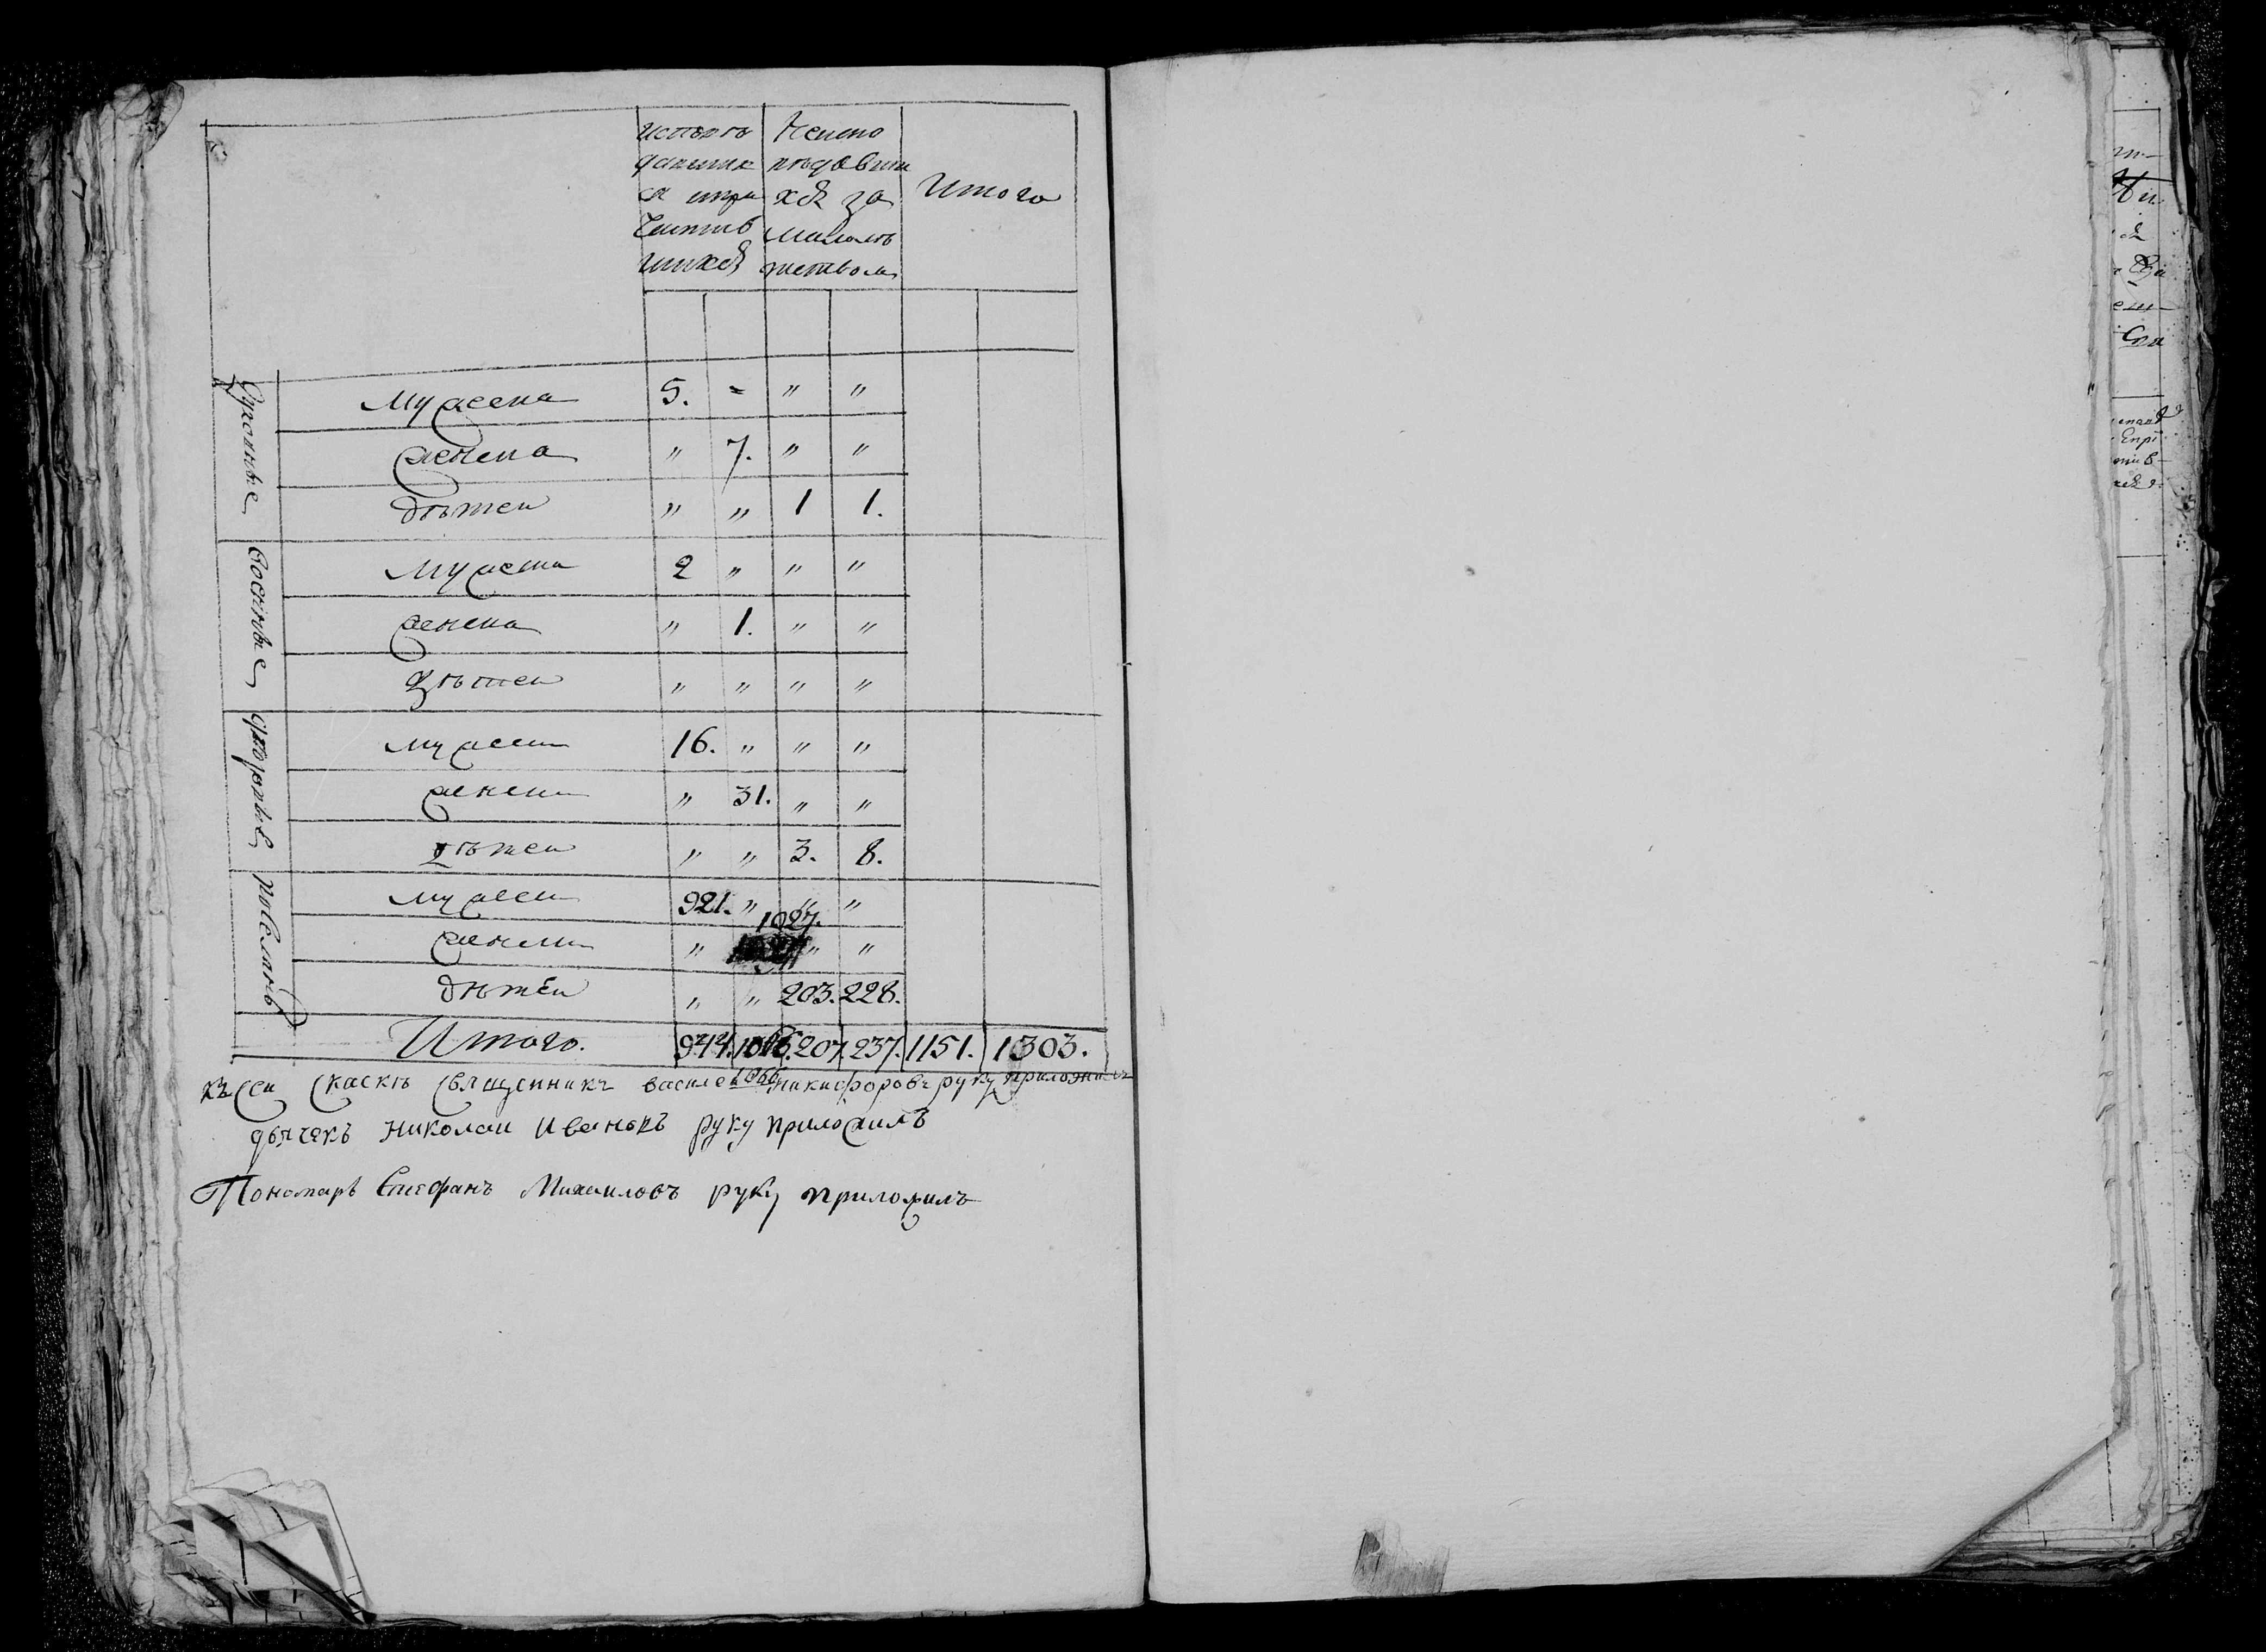 исповѣ
давших
ся и при
частив
шихся
Неиспо
вѣдавши
хся за
малолѣ
тством
Итого
Духовные
мужеска 5. " " "
женска " 7. " "
дѣтеи " " 1 1.
военные
мужеска 2 " " "
женска " 1. " "
дѣтеи " " " "
дворовые
мужеск 16. " " "
женск " 31. " "
дѣтеи " " 3. 8.
поселянъ
мужеск 921. " " "
1027.
женск " " "
дѣтеи " " 203. 228.
Итого. 944. 1066. 207. 237. 1151. 1303.
1066
къ сеи скаскѣ священникъ василеи никифоровъ руку приложилъ
дьячекъ николаи Ивановъ руку приложилъ
Пономарь Епифанъ Михаиловъ руку приложилъ